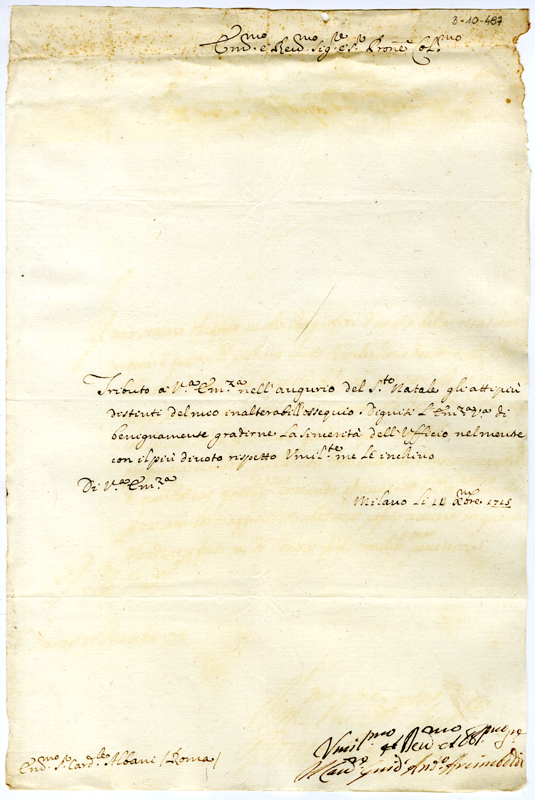 8-10-487
Em.mo e Rev.mo Sig.re e S.r Prone Col.mo
Tributo a V.ra Em.za nell'augurio del S.to Natale gli atti più
distinti del mio inalterabil ossequio. Si degni L'Em.za V.ra di
benignamente gradirne La sincerità dell'Ufficio nel mentre
con il più divoto rispetto Vmil.te me Le inchino
Di V.ra Em.za
Milano Li 11 Xbre. 1715
Vmil.mo Dev.mo et
Em.mo S.r Card.le Albani (Roma)